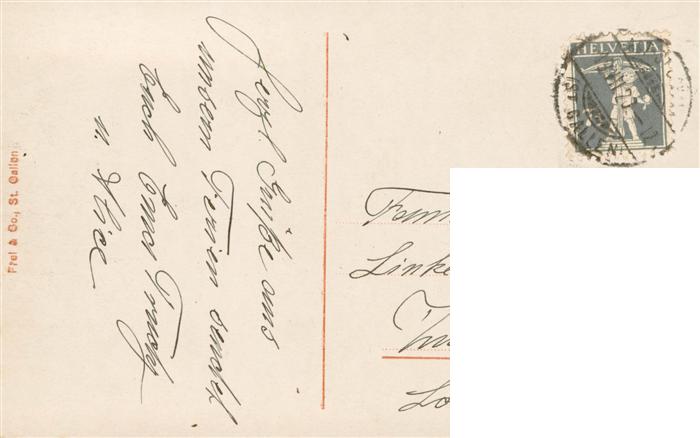 Herzl. Grüße aus
unsern Ferien sendet
Euch Eure Trudy
u. Alice
Frei & Co., St. Gallen
HELVETIA
ST. GALLEN
Fam
Linke
Lo